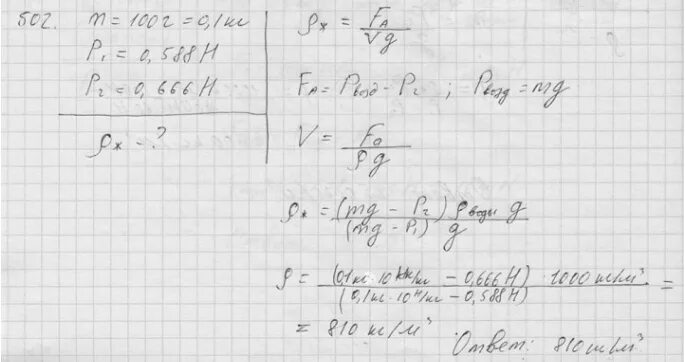 502. m = 100г = 0,1 кг
P₁ = 0,588 Н
P₂ = 0,666 Н
ρж - ?
ρж = FA / Vg
FA = Pвозд - P₂ ; Pвозд = mg
V = Fa / ρg
ρж = (mg - P₂) ρводы g / (mg - P₁) g
ρ = (0,1кг · 10 Н/кг - 0,666 Н) · 1000 кг/м³ / (0,1кг · 10 Н/кг - 0,588 Н) =
= 810 кг/м³
Ответ: 810 кг/м³